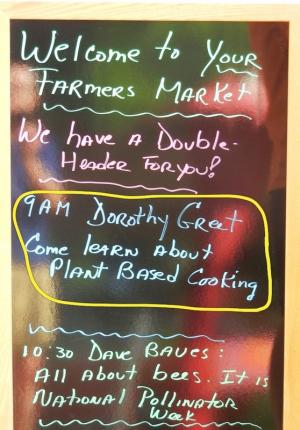 Welcome to Your
Farmers Market
We have a Double-
Header For you!
9AM Dorothy Greet
Come learn About
Plant Based Cooking
10:30 Dave Baues:
All About bees. It is
National Pollinator
Week